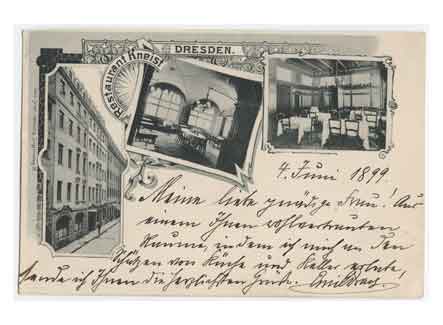 Restaurant Kneist
DRESDEN.
4. Juni 1899.
Meine liebe gnädige Frau! Aus
einem Ihnen wohlvertrauten
Raume, in dem ich mich an den
Schätzen von Küche und Keller erlabe,
sende ich Ihnen die herzlichsten Grüße.